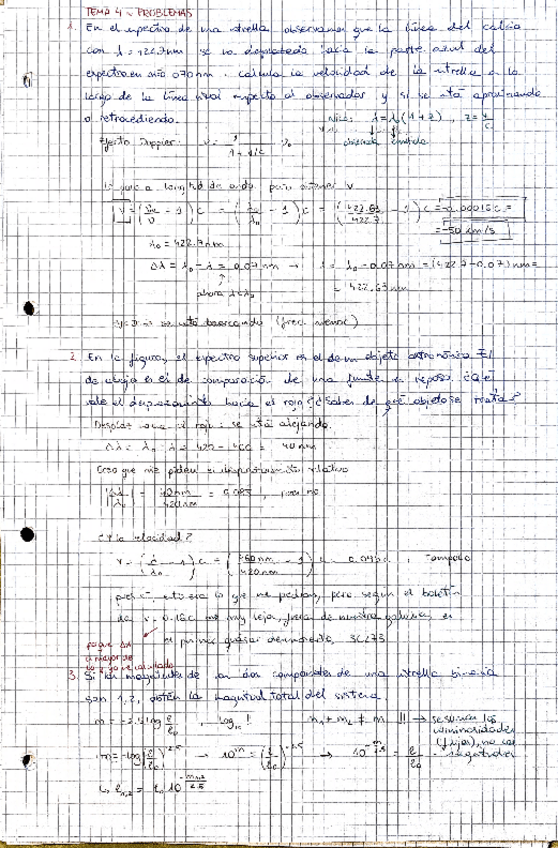 TEMA 4 - PROBLEMAS
1. En el espectro de una estrella observamos que la línea del calcio
con λ = 422.7nm se ve desplazada hacia la parte azul del
espectro en 0.070nm. Calcula la velocidad de la estrella a lo
largo de la línea visual respecto al observador y si se está aproximando
o retrocediendo.
λ = λ₀(1+z), z = v/c
observada emitida
Efecto Doppler:
longitud de onda para obtener v
v = (ν₀/ν - 1)c = (λ/λ₀ - 1)c = (422.63/422.7 - 1)c = -0.00016c =
= -50 km/s
λ₀ = 422.7nm
Δλ = λ₀ - λ = 0.07nm → λ = λ₀ - 0.07nm = (422.7 - 0.07)nm =
= 422.63nm
ahora λ<λ₀
se está acercando
2. En la figura, el espectro superior es el de un objeto astronómico. El
de abajo es el de comparación de una fuente en reposo. ¿Qué
vale el desplazamiento hacia el rojo? ¿Sabes de qué objeto se trata?
Desplaz. hacia el rojo: se está alejando.
40nm
Creo que me piden el desplazamiento relativo
|Δλ/λ₀| = 40nm/420nm = 0.095, pero no
¿Y la velocidad?
v = (λ/λ₀ - 1)c = (460nm/420nm - 1)c = 0.095c. Tampoco
esto era lo que me pedían, pero según el boletín
v = 0.16c muy lejos, fuera de nuestra galaxia, es
el primer quásar descubierto, 3C273
3. Si las magnitudes de las dos componentes de una estrella binaria
son 1, 2, obtén la magnitud total del sistema.
m = -2.5 log ℓ/ℓ₀, log₁₀ ! m₁ + m₂ ≠ m !!! → se suman las
luminosidades
(flujos), no las
magnitudes
m = -log(ℓ/ℓ₀)^2.5 → 10^m = (ℓ/ℓ₀)^-2.5 → 10^-m/2.5 = ℓ/ℓ₀
↳ ℓ₁,₂ = ℓ₀ 10^-m₁,₂/2.5